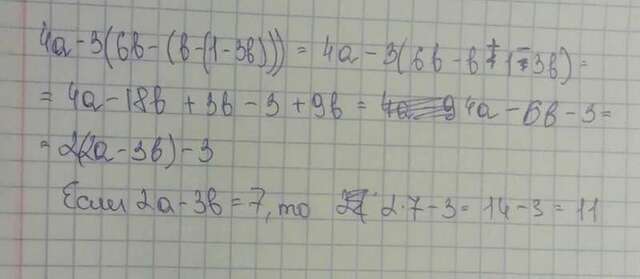 4a-3(6b-(b-(1-3b))) = 4a-3(6b-b+1-3b) =
= 4a-18b+3b-3+9b = 4a-6b-3 =
= 2(2a-3b)-3
Если 2a-3b=7, то 2·7-3=14-3=11